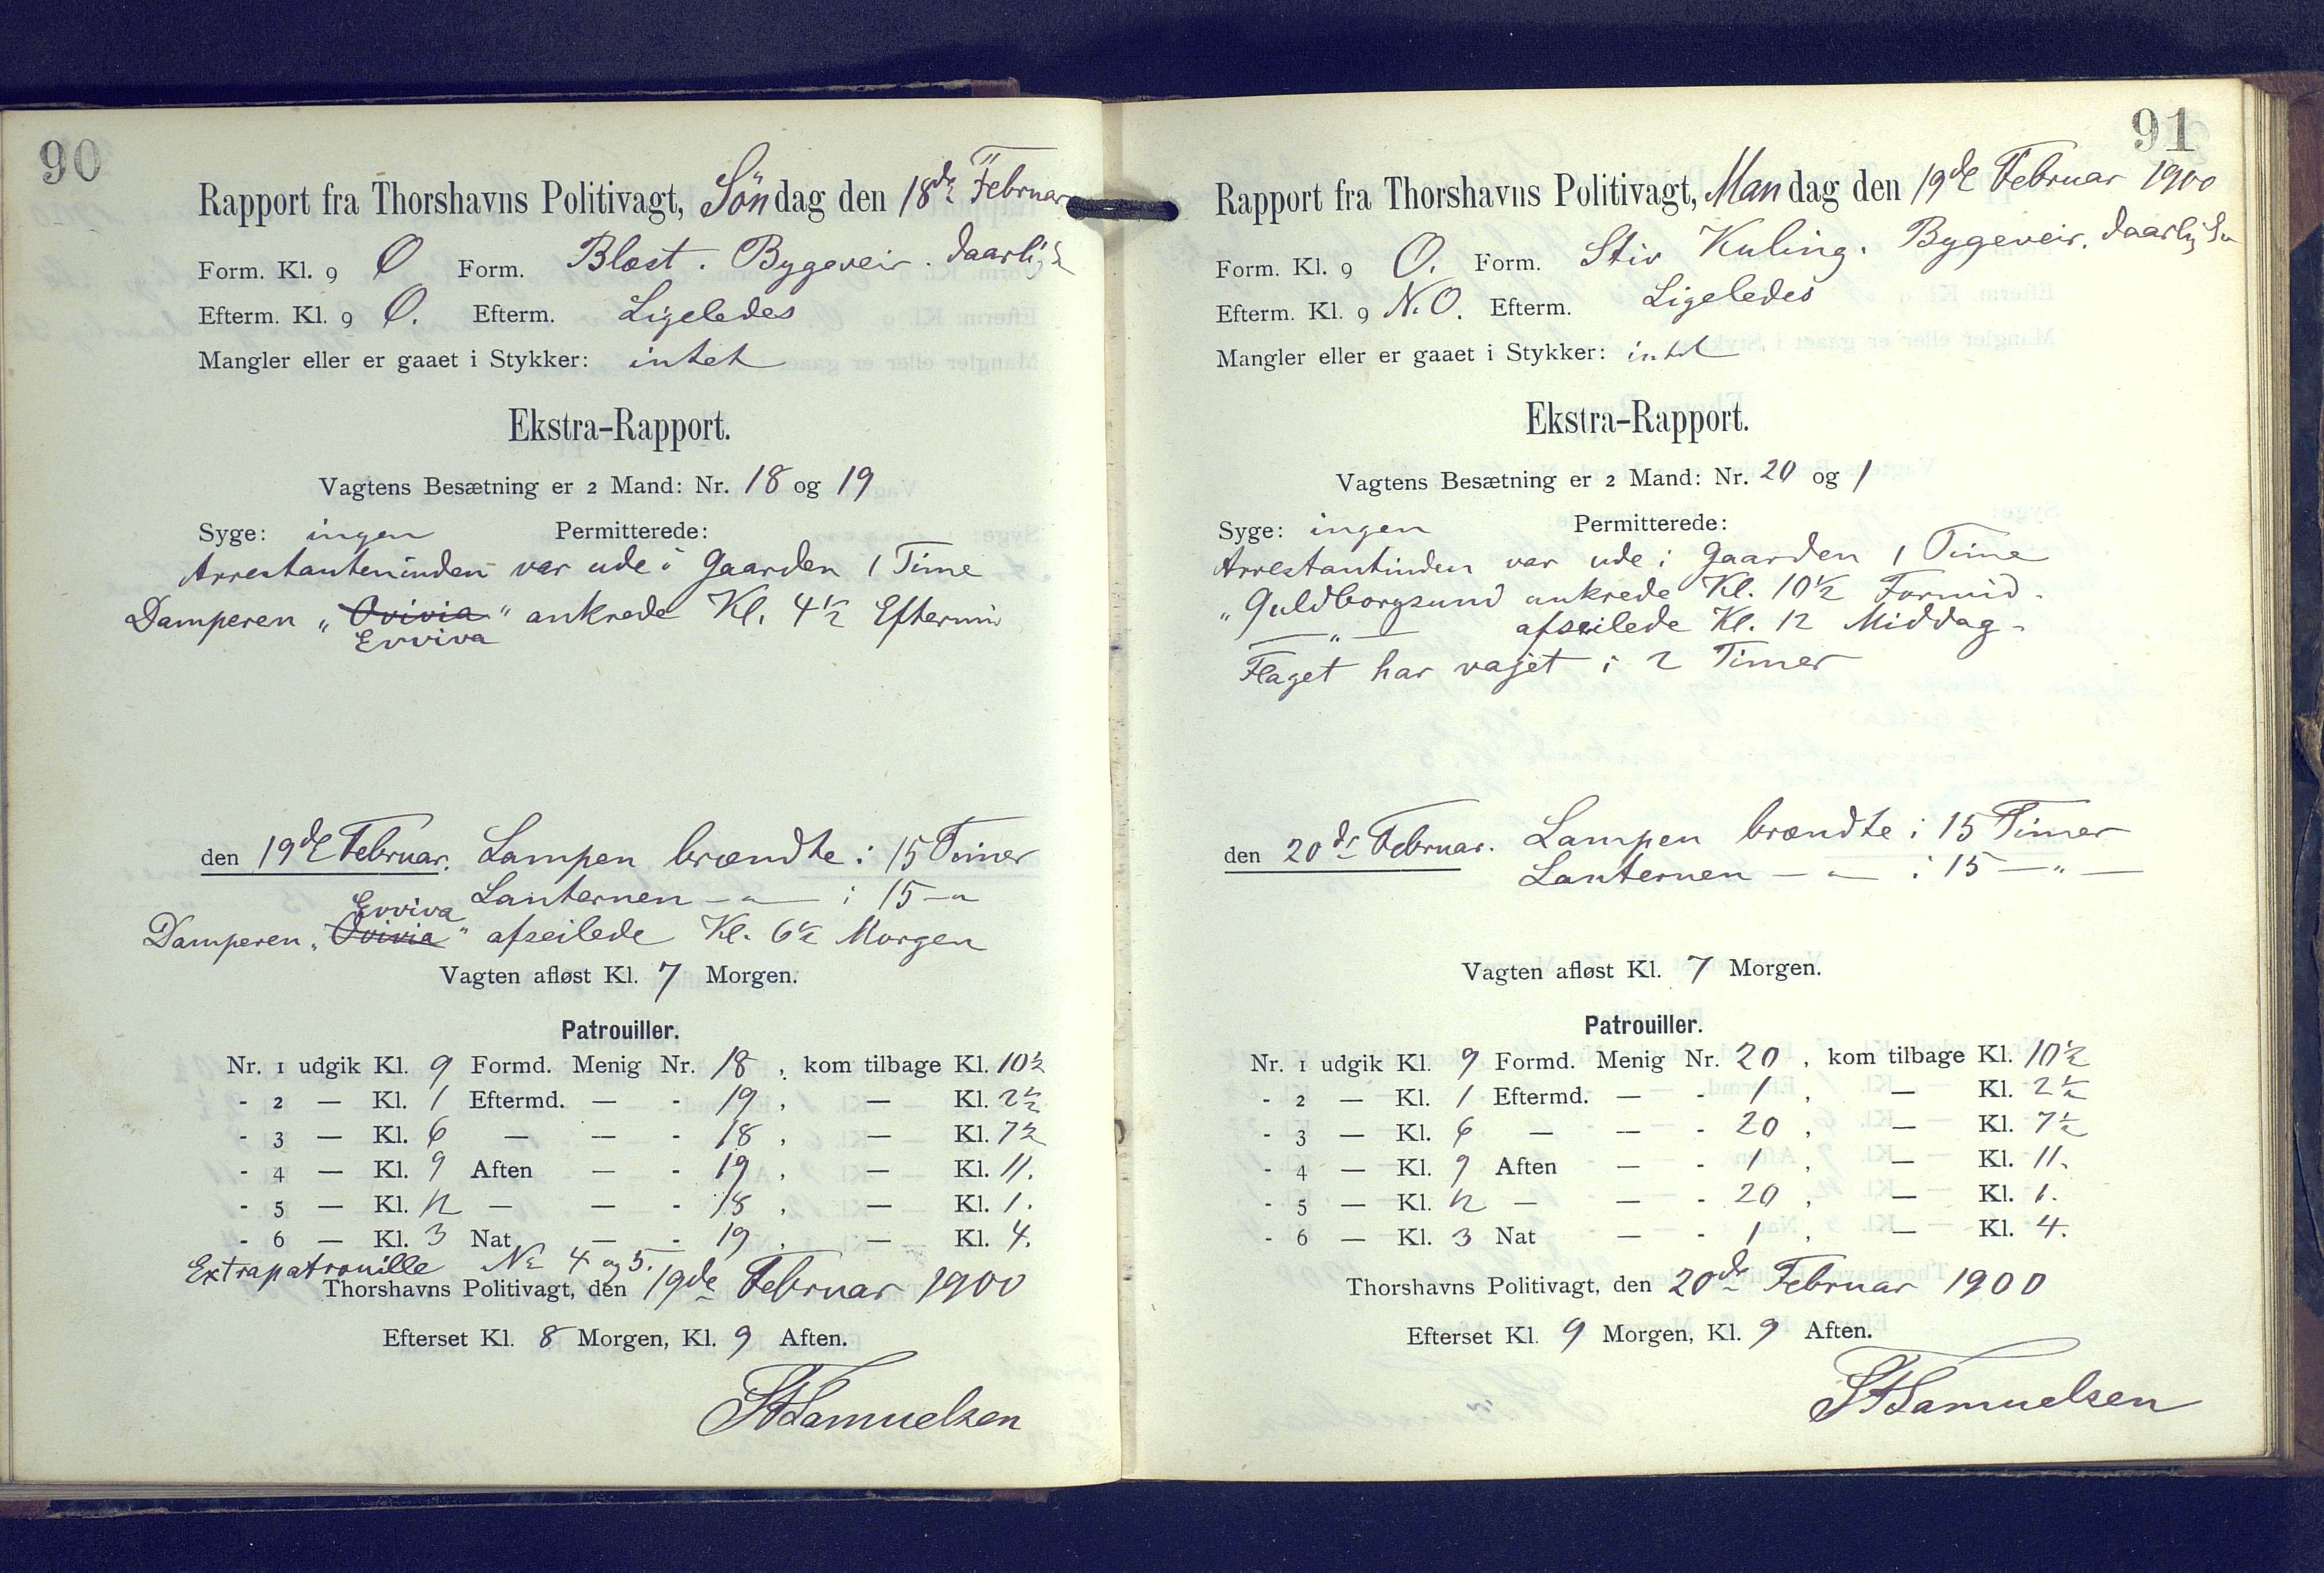 90
Rapport fra Thorshavns Politivagt, Söndag den 18de Februar
Form. Kl. 9 O Form. Blæst. Bygeveir. daarlig
Efterm. Kl. 9 O. Efterm. Ligeledes
Mangler eller er gaaet i Stykker: intet
Ekstra-Rapport.
Vagtens Besætning er 2 Mand: Nr. 18 og 19
Syge: ingen Permitterede:
Arrestanteninden var ude i Gaarden 1 Time
Damperen „Ovivia" ankrede Kl. 4½ Eftermid
Evviva
den 19de Februar. Lampen brændte i 15 Timer
Lanternen — „ — i 15 — „
Evviva
Damperen „Ovivia" afseilede Kl. 6½ Morgen
Vagten afløst Kl. 7 Morgen.
Patrouiller.
Nr. 1 udgik Kl. 9 Formd. Menig Nr. 18, kom tilbage Kl. 10½
- 2 — Kl. 1 Eftermd. — - 19, — Kl. 2½
- 3 — Kl. 6 — — - 18, — Kl. 7½
- 4 — Kl. 9 Aften — - 19, — Kl. 11.
- 5 — Kl. 12 — — - 18, — Kl. 1.
- 6 — Kl. 3 Nat — - 19, — Kl. 4.
Extrapatrouille No 4 og 5.
Thorshavns Politivagt, den 19de Februar 1900
Efterset Kl. 8 Morgen, Kl. 9 Aften.
Samuelsen
91
Rapport fra Thorshavns Politivagt, Mandag den 19de Februar 1900
Form. Kl. 9 O. Form. Stiv Kuling. Bygeveir. daarlig
Efterm. Kl. 9 N.O. Efterm. Ligeledes
Mangler eller er gaaet i Stykker: intet
Ekstra-Rapport.
Vagtens Besætning er 2 Mand: Nr. 20 og 1
Syge: ingen Permitterede:
Arrestantinden var ude i Gaarden 1 Time
„Guldborgsund ankrede Kl. 10½ Formid.
— „ — afseilede Kl. 12 Middag.
Flaget har vajet i 2 Timer
den 20de Februar. Lampen brændte i 15 Timer
Lanternen — „ — i 15 — „ —
Vagten afløst Kl. 7 Morgen.
Patrouiller.
Nr. 1 udgik Kl. 9 Formd. Menig Nr. 20, kom tilbage Kl. 10½
- 2 — Kl. 1 Eftermd. — - 1, — Kl. 2½
- 3 — Kl. 6 — — - 20, — Kl. 7½
- 4 — Kl. 9 Aften — - 1, — Kl. 11.
- 5 — Kl. 12 — — - 20, — Kl. 1.
- 6 — Kl. 3 Nat — - 1, — Kl. 4.
Thorshavns Politivagt, den 20de Februar 1900
Efterset Kl. 9 Morgen, Kl. 9 Aften.
Samuelsen